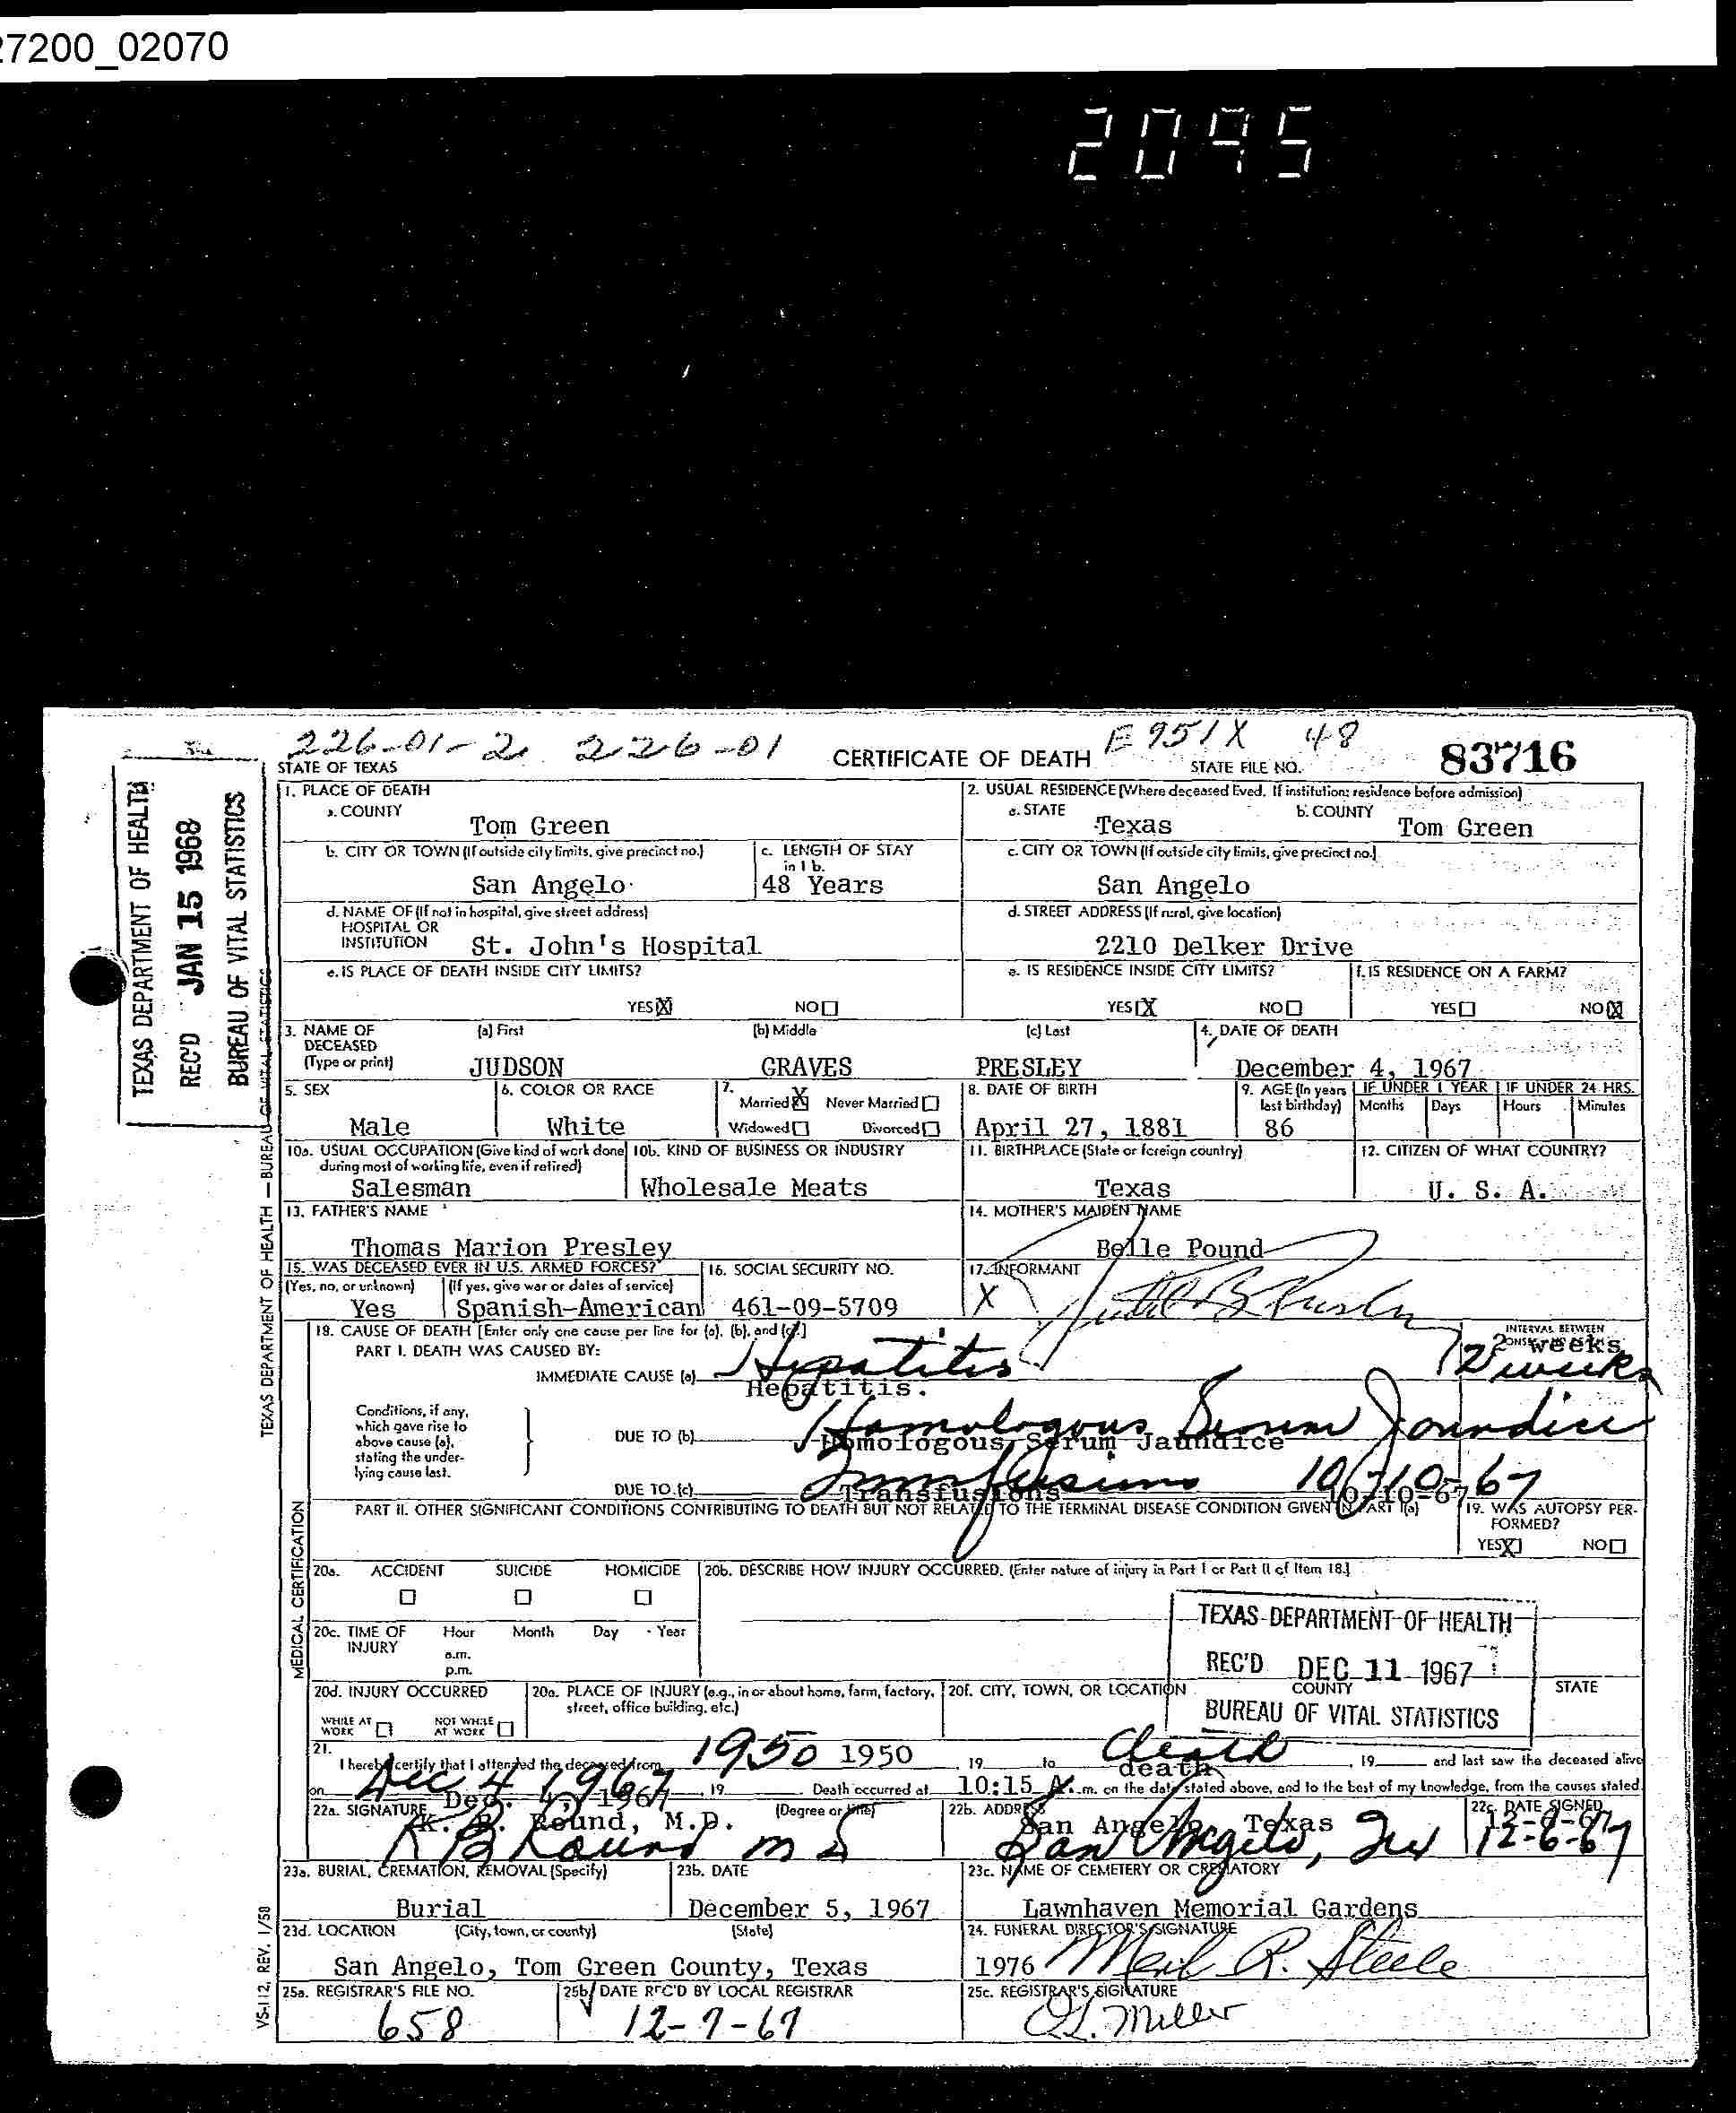 27200_02070
2095
226-01-2 226-01 CERTIFICATE OF DEATH E951X 48
STATE OF TEXAS STATE FILE NO. 83716
TEXAS DEPARTMENT OF HEALTH
REC'D JAN 15 1968
BUREAU OF VITAL STATISTICS
TEXAS DEPARTMENT OF HEALTH — BUREAU OF VITAL STATISTICS
1. PLACE OF DEATH 2. USUAL RESIDENCE (Where deceased lived. If institution: residence before admission)
a. COUNTY Tom Green a. STATE Texas b. COUNTY Tom Green
b. CITY OR TOWN (If outside city limits, give precinct no.) c. LENGTH OF STAY in 1 b. c. CITY OR TOWN (If outside city limits, give precinct no.)
San Angelo 48 Years San Angelo
d. NAME OF (If not in hospital, give street address) HOSPITAL OR INSTITUTION d. STREET ADDRESS (If rural, give location)
St. John's Hospital 2210 Delker Drive
e. IS PLACE OF DEATH INSIDE CITY LIMITS? e. IS RESIDENCE INSIDE CITY LIMITS? f. IS RESIDENCE ON A FARM?
YES X NO YES X NO YES NO X
3. NAME OF DECEASED (Type or print) (a) First (b) Middle (c) Last 4. DATE OF DEATH
JUDSON GRAVES PRESLEY December 4, 1967
5. SEX 6. COLOR OR RACE 7. Married X Never Married 8. DATE OF BIRTH 9. AGE (In years last birthday) IF UNDER 1 YEAR IF UNDER 24 HRS.
Months Days Hours Minutes
Male White Widowed Divorced April 27, 1881 86
10a. USUAL OCCUPATION (Give kind of work done during most of working life, even if retired) 10b. KIND OF BUSINESS OR INDUSTRY 11. BIRTHPLACE (State or foreign country) 12. CITIZEN OF WHAT COUNTRY?
Salesman Wholesale Meats Texas U. S. A.
13. FATHER'S NAME 14. MOTHER'S MAIDEN NAME
Thomas Marion Presley Belle Pound
15. WAS DECEASED EVER IN U.S. ARMED FORCES? 16. SOCIAL SECURITY NO. 17. INFORMANT
(Yes, no, or unknown) (If yes, give war or dates of service)
Yes Spanish-American 461-09-5709 X
18. CAUSE OF DEATH [Enter only one cause per line for (a), (b), and (c).] INTERVAL BETWEEN
PART I. DEATH WAS CAUSED BY: 2 weeks
IMMEDIATE CAUSE (a) Hepatitis 2 weeks
Hepatitis.
Conditions, if any, which gave rise to above cause (a), stating the underlying cause last.
DUE TO (b) Homologous Serum Jaundice
Homologous Serum Jaundice
DUE TO (c) Transfusions 10-10-67
Transfusions 10-10-67
PART II. OTHER SIGNIFICANT CONDITIONS CONTRIBUTING TO DEATH BUT NOT RELATED TO THE TERMINAL DISEASE CONDITION GIVEN IN PART I(a) 19. WAS AUTOPSY PERFORMED?
YES X NO
MEDICAL CERTIFICATION
20a. ACCIDENT SUICIDE HOMICIDE 20b. DESCRIBE HOW INJURY OCCURRED. (Enter nature of injury in Part I or Part II of Item 18.)
TEXAS DEPARTMENT OF HEALTH
REC'D DEC 11 1967
BUREAU OF VITAL STATISTICS
20c. TIME OF INJURY Hour Month Day Year
a.m.
p.m.
20d. INJURY OCCURRED 20e. PLACE OF INJURY (e.g., in or about home, farm, factory, street, office building, etc.) 20f. CITY, TOWN, OR LOCATION COUNTY STATE
WHILE AT WORK NOT WHILE AT WORK
21. I hereby certify that I attended the deceased from 1950 1950, 19 to death death, 19 and last saw the deceased alive
on Dec 4 1967 Dec. 4, 1967, 19 Death occurred at 10:15 A.m. on the date stated above, and to the best of my knowledge, from the causes stated.
22a. SIGNATURE (Degree or title) 22b. ADDRESS 22c. DATE SIGNED
R. B. Round, M.D. San Angelo, Texas 12-6-67
R B Round M D San Angelo, Tex 12-6-67
23a. BURIAL, CREMATION, REMOVAL (Specify) 23b. DATE 23c. NAME OF CEMETERY OR CREMATORY
Burial December 5, 1967 Lawnhaven Memorial Gardens
23d. LOCATION (City, town, or county) (State) 24. FUNERAL DIRECTOR'S SIGNATURE
San Angelo, Tom Green County, Texas 1976 R. Steele
25a. REGISTRAR'S FILE NO. 25b. DATE REC'D BY LOCAL REGISTRAR 25c. REGISTRAR'S SIGNATURE
658 12-7-67 Miller
VS-112, REV. 1/58